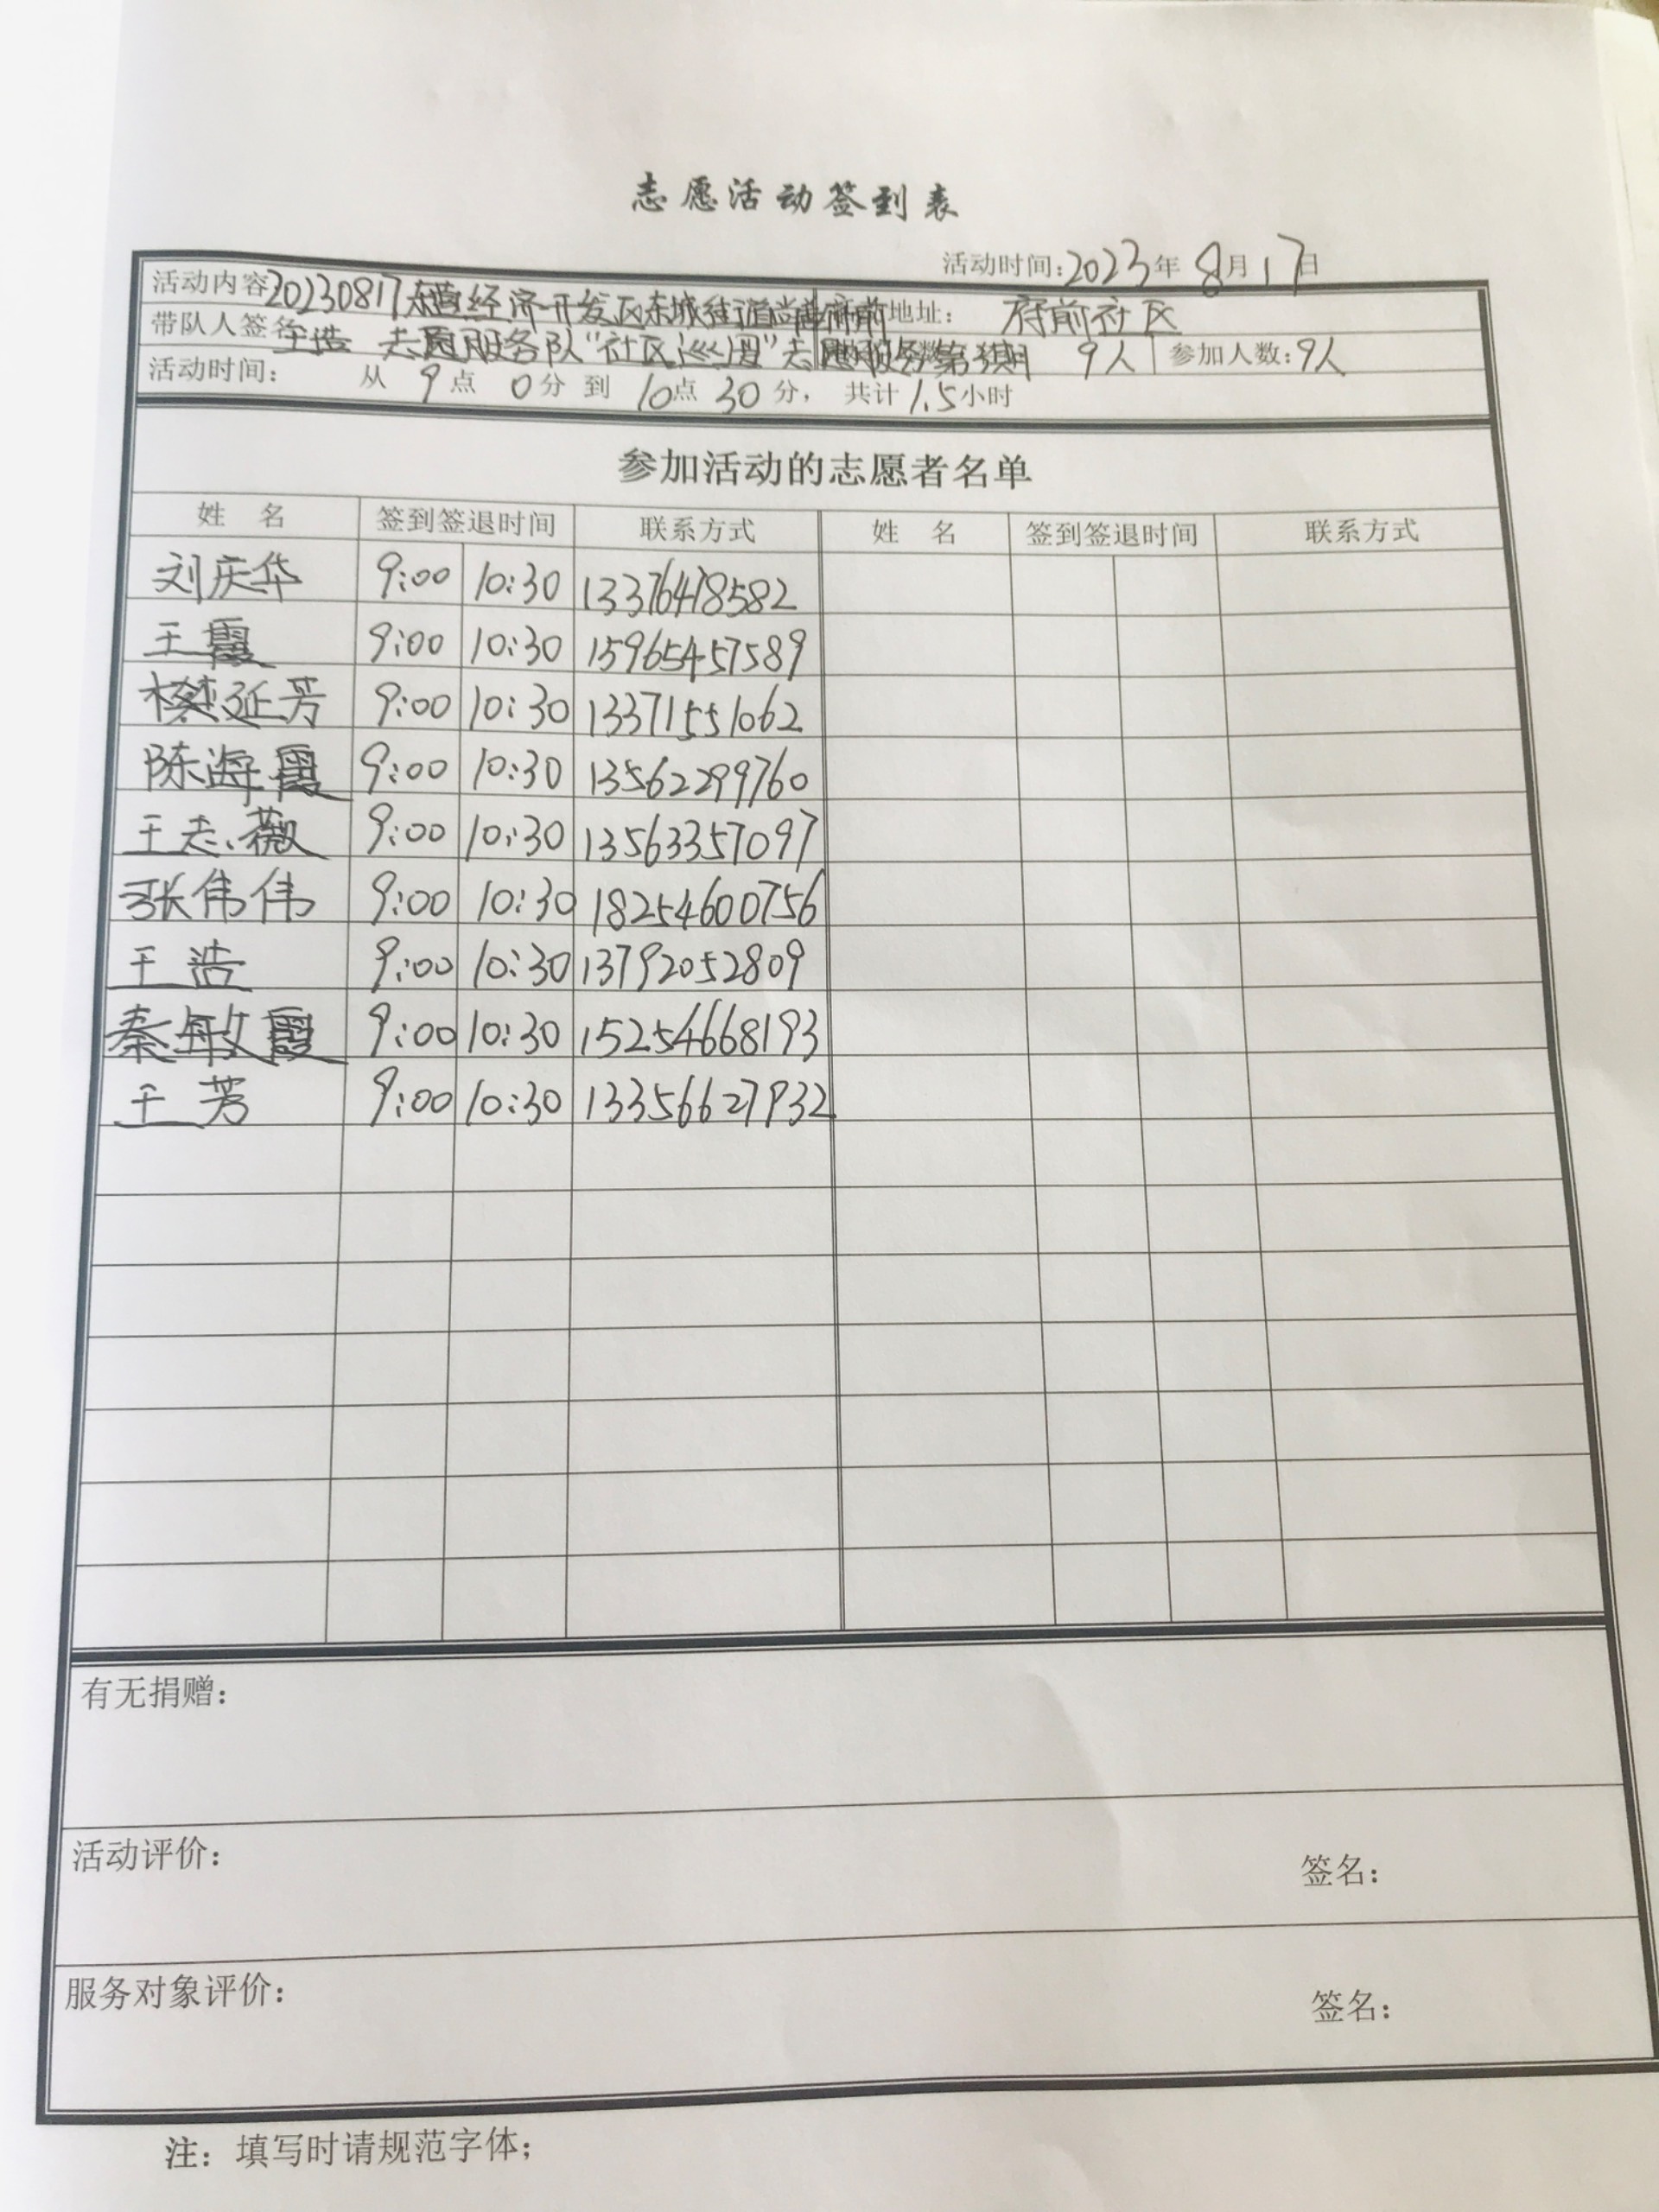 志愿活动签到表
活动时间:2023年 8月17日
活动内容 20230817东营经济开发区东城街道尚 府前 地址: 府前社区
带队人签名 王浩 志愿服务队“社区巡逻”志愿服务第 期 9人 参加人数:9人
活动时间: 从 9点 0分 到 10点 30分, 共计1.5小时
参加活动的志愿者名单
姓 名 签到签退时间 联系方式 姓 名 签到签退时间 联系方式
刘庆华 9:00 10:30 13376478582
王霞 9:00 10:30 15965457589
樊延芳 9:00 10:30 13371551062
陈海霞 9:00 10:30 13562299760
王志薇 9:00 10:30 13563357097
张伟伟 9:00 10:30 18254600756
王浩 9:00 10:30 13792052809
秦敏霞 9:00 10:30 15254668193
王芳 9:00 10:30 13356627932
有无捐赠:
活动评价:
签名:
服务对象评价:
签名:
注: 填写时请规范字体;